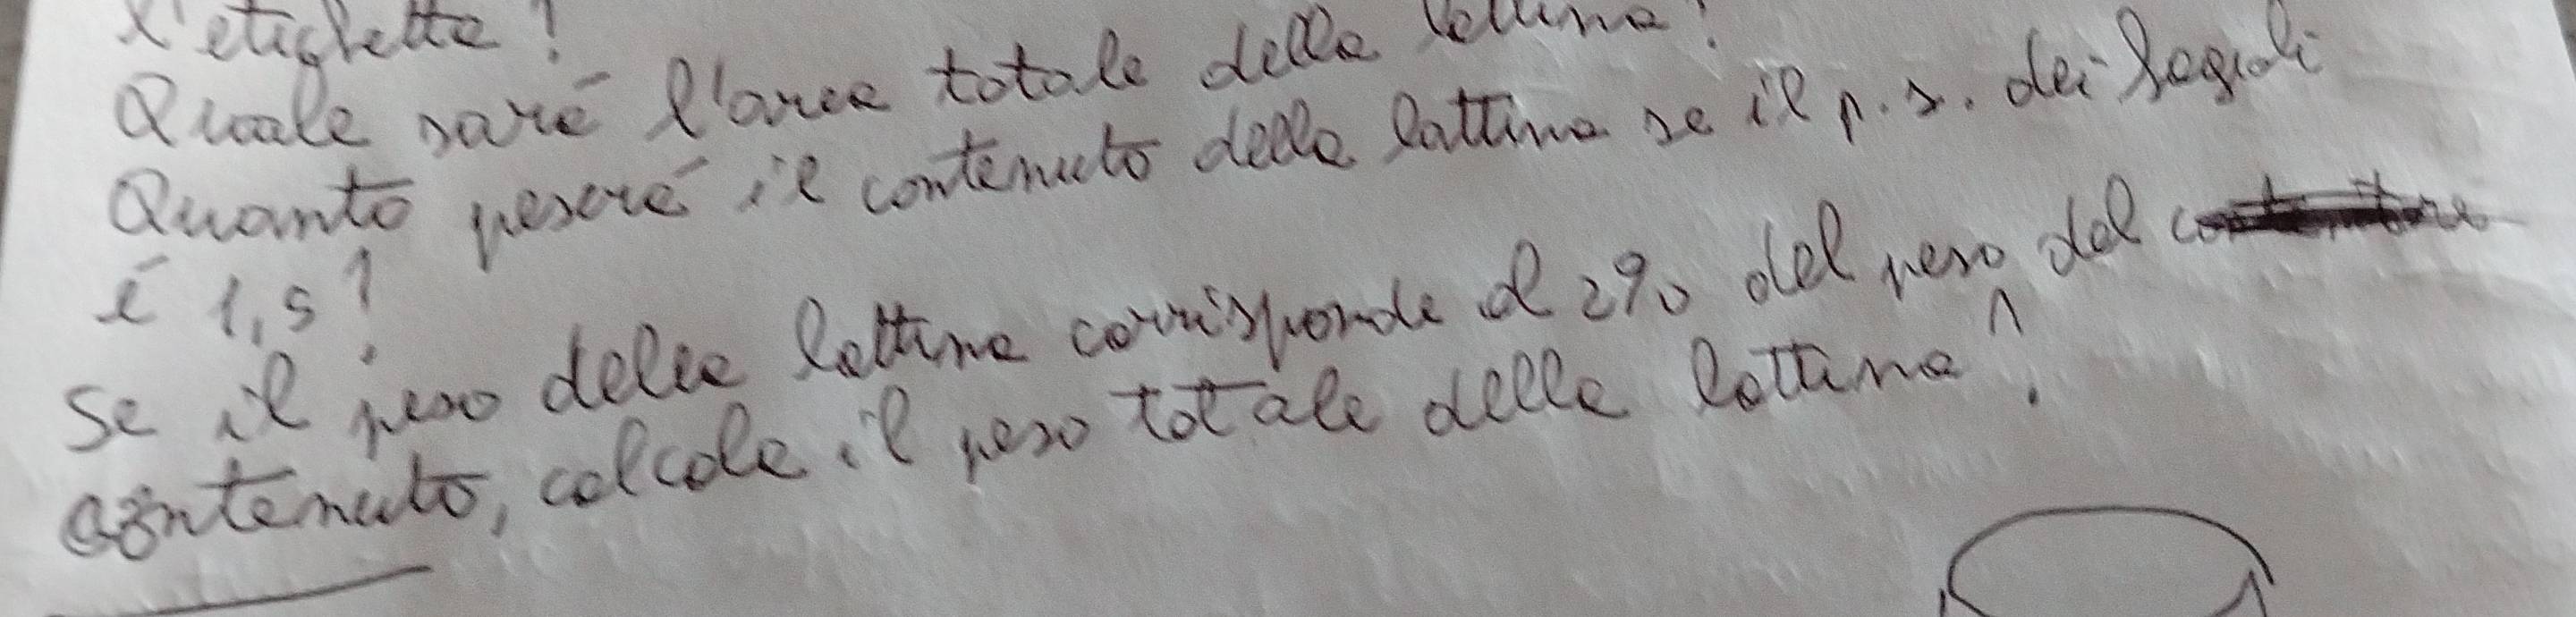 l'etichetta?
Quale saré l'area totale della lattina?
Quanto peseré il contenuto della lattina se il p.s. dei fagioli
é 1,5?
Se il peso della lattina corrisponde al 2% del peso del
contenuto, calcola il peso totale della lattina?